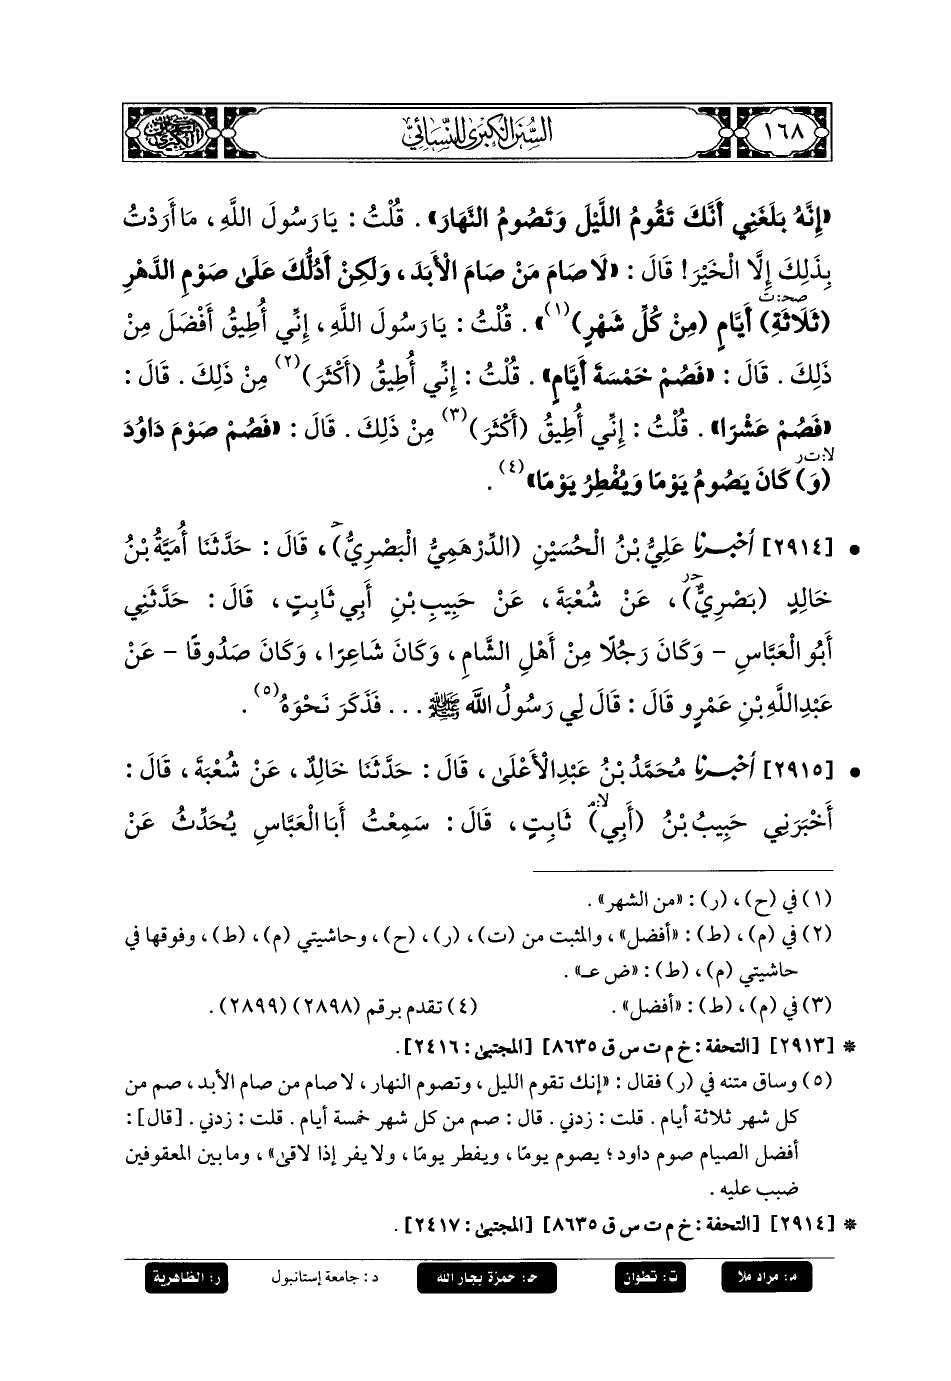 ١٦٨
السنن الكبرى للنسائي
«إِنَّهُ بَلَغَنِي أَنَّكَ تَقُومُ اللَّيْلَ وَتَصُومُ النَّهَارَ» . قُلْتُ : يَا رَسُولَ اللَّهِ ، مَا أَرَدْتُ
بِذَلِكَ إِلَّا الْخَيْرَ! قَالَ : «لَا صَامَ مَنْ صَامَ الْأَبَدَ ، وَلَكِنْ أَدُلُّكَ عَلَى صَوْمِ الدَّهْرِ
صح:ت
(ثَلَاثَةِ) أَيَّامٍ (مِنْ كُلِّ شَهْرٍ)(١)» . قُلْتُ : يَا رَسُولَ اللَّهِ ، إِنِّي أُطِيقُ أَفْضَلَ مِنْ
ذَلِكَ . قَالَ : «فَصُمْ خَمْسَةَ أَيَّامٍ» . قُلْتُ : إِنِّي أُطِيقُ (أَكْثَرَ)(٢) مِنْ ذَلِكَ . قَالَ :
«فَصُمْ عَشْرًا» . قُلْتُ : إِنِّي أُطِيقُ (أَكْثَرَ)(٣) مِنْ ذَلِكَ . قَالَ : «فَصُمْ صَوْمَ دَاوُدَ
لا:ت ر
(وَ) كَانَ يَصُومُ يَوْمًا وَيُفْطِرُ يَوْمًا»(٤) .
• [٢٩١٤] أَخْبَرَنَا عَلِيُّ بْنُ الْحُسَيْنِ (الدِّرْهَمِيُّ الْبَصْرِيُّ)ح ، قَالَ : حَدَّثَنَا أُمَيَّةُ بْنُ
خَالِدٍ (بَصْرِيٌّ)حر ، عَنْ شُعْبَةَ ، عَنْ حَبِيبِ بْنِ أَبِي ثَابِتٍ ، قَالَ : حَدَّثَنِي
أَبُو الْعَبَّاسِ - وَكَانَ رَجُلًا مِنْ أَهْلِ الشَّامِ ، وَكَانَ شَاعِرًا ، وَكَانَ صَدُوقًا - عَنْ
عَبْدِ اللَّهِ بْنِ عَمْرٍو قَالَ : قَالَ لِي رَسُولُ اللَّهِ ﷺ ... فَذَكَرَ نَحْوَهُ(٥) .
• [٢٩١٥] أَخْبَرَنَا مُحَمَّدُ بْنُ عَبْدِ الْأَعْلَى ، قَالَ : حَدَّثَنَا خَالِدٌ ، عَنْ شُعْبَةَ ، قَالَ :
أَخْبَرَنِي حَبِيبُ بْنُ (أَبِي)لا:م ثَابِتٍ ، قَالَ : سَمِعْتُ أَبَا الْعَبَّاسِ يُحَدِّثُ عَنْ
(١) في (ح) ، (ر) : «من الشهر» .
(٢) في (م) ، (ط) : «أفضل» ، والمثبت من (ت) ، (ر) ، (ح) ، وحاشيتي (م) ، (ط) ، وفوقها في
حاشيتي (م) ، (ط) : «ض عـ» .
(٣) في (م) ، (ط) : «أفضل» .
(٤) تقدم برقم (٢٨٩٨) (٢٨٩٩) .
* [٢٩١٣] [التحفة : خ م ت س ق ٨٦٣٥] [المجتبى : ٢٤١٦].
(٥) وساق متنه في (ر) فقال : «إنك تقوم الليل ، وتصوم النهار ، لا صام من صام الأبد ، صم من
كل شهر ثلاثة أيام . قلت : زدني . قال : صم من كل شهر خمسة أيام . قلت : زدني . [قال] :
أفضل الصيام صوم داود ؛ يصوم يومًا ، ويفطر يومًا ، ولا يفر إذا لاقى» ، وما بين المعقوفين
ضبب عليه .
* [٢٩١٤] [التحفة : خ م ت س ق ٨٦٣٥] [المجتبى : ٢٤١٧] .
م: مراد ملا
ت: تطوان
حـ: حمزة بجار الله
د : جامعة إستانبول
ر: الظاهرية